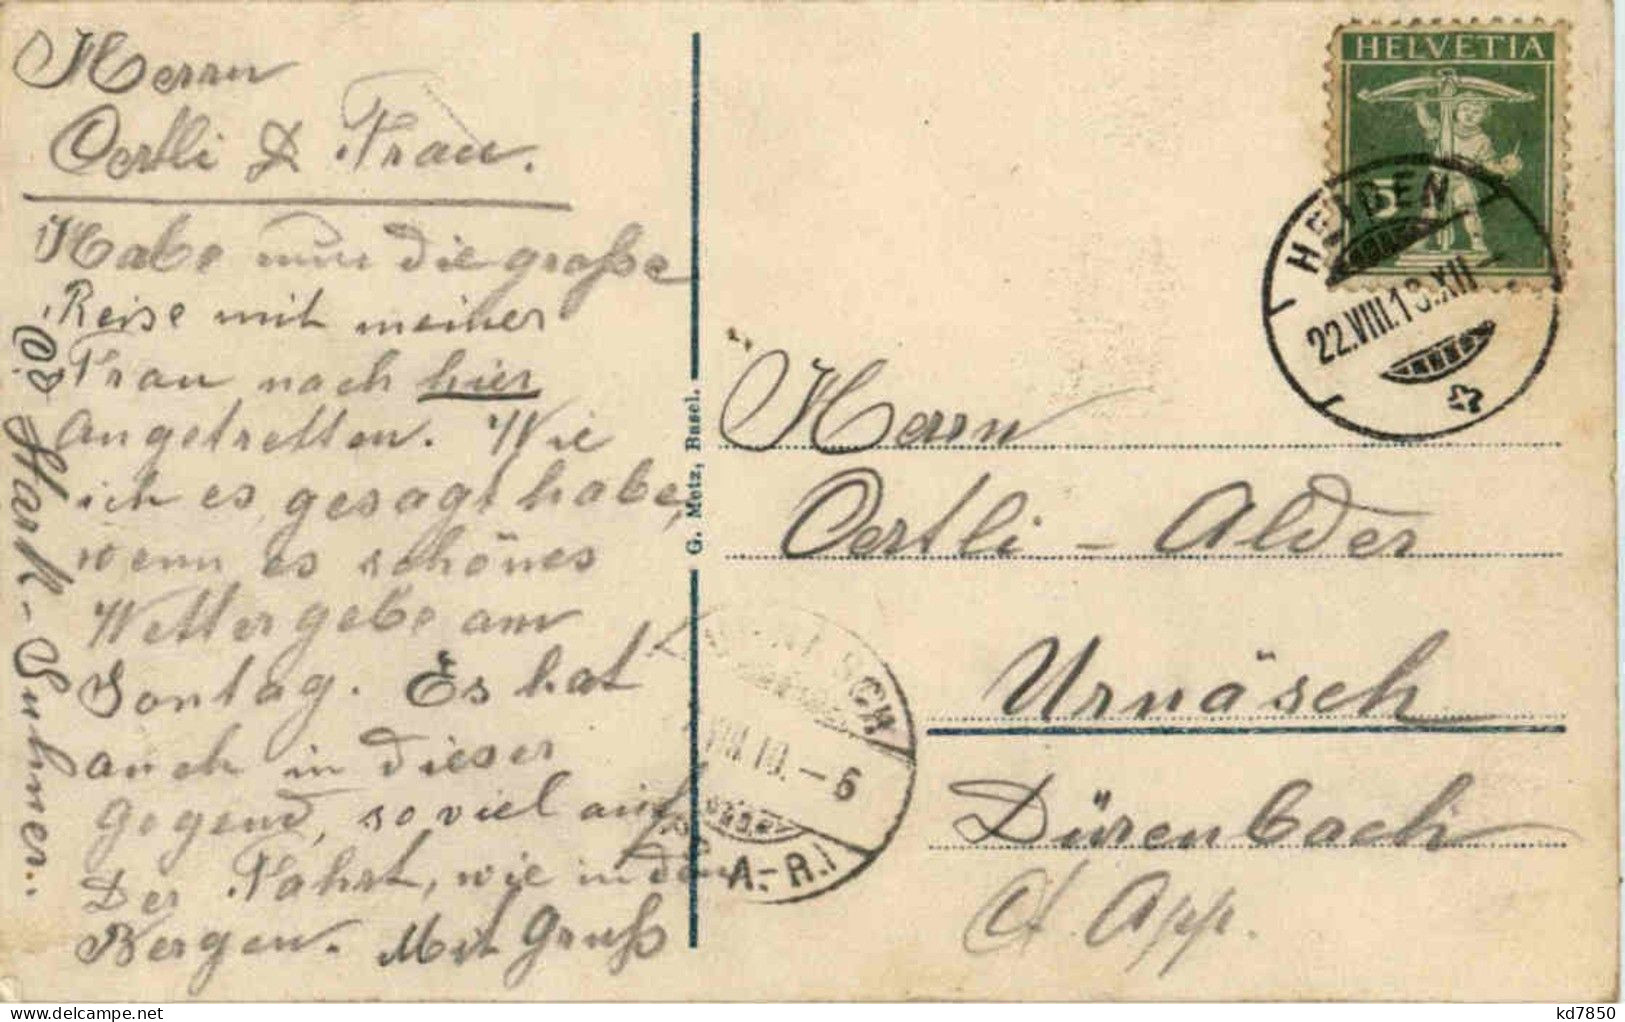 Herrn
Oertli & Frau.
Habe nun die große
Reise mit meiner
Frau nach hier
angetretten. Wie
ich es gesagt habe,
wenn es schönes
Wetter gebe am
Sontag. Es hat
auch in dieser
Gegend, so viel auf
der Fahrt, wie in den
Bergen. Mit Gruß
Stark-Suhner.
G. Metz, Basel.
HELVETIA
5
HEIDEN
22.VIII.13.XII
Herrn
Oertli - Alder
Urnäsch
Dürenbach
Ct. App.
SCH
VIII.10.-6
A.-R.
kd7850